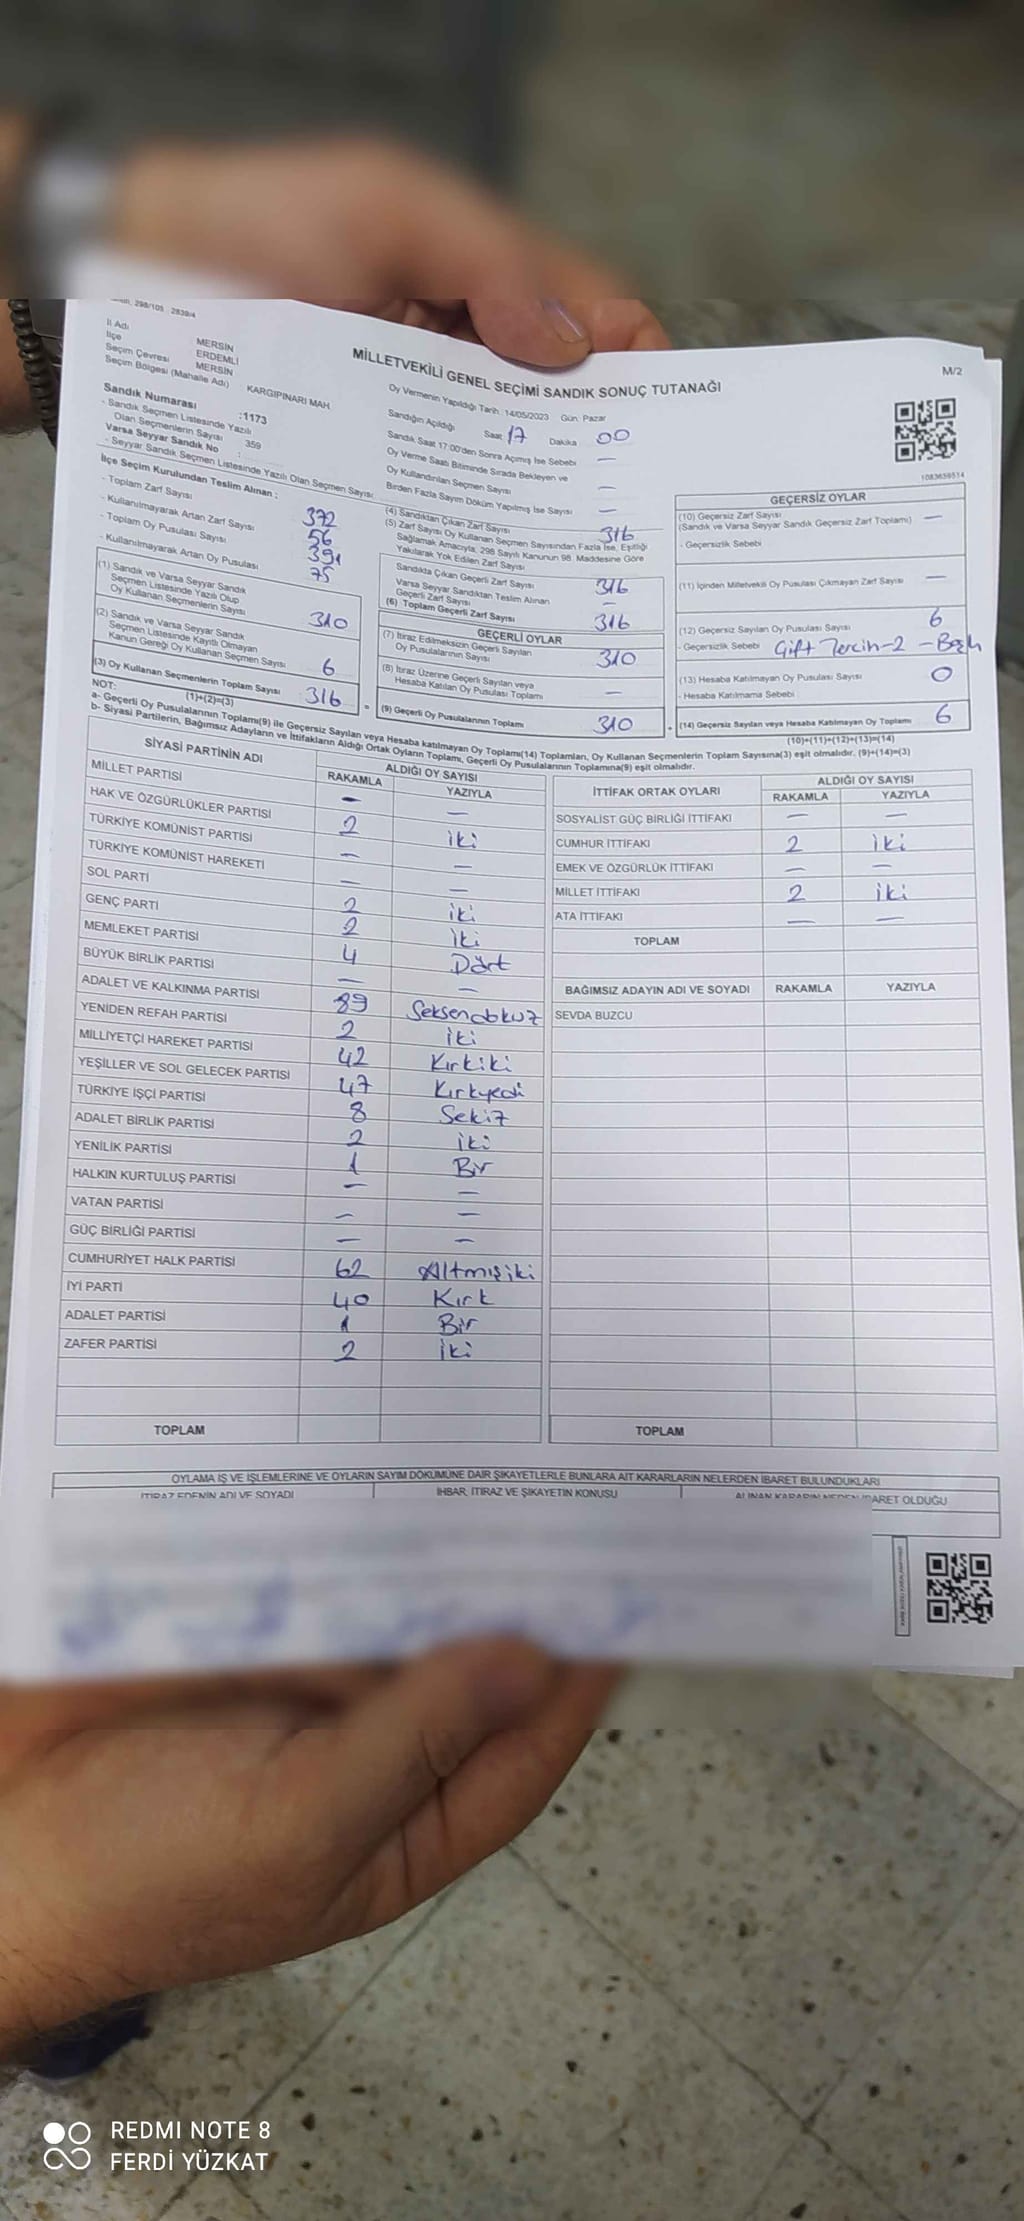 298/105 2839/4
M/2
İl Adı MERSİN
İlçe ERDEMLİ
Seçim Çevresi MERSİN
Seçim Bölgesi (Mahalle Adı) KARGIPINARI MAH.
MİLLETVEKİLİ GENEL SEÇİMİ SANDIK SONUÇ TUTANAĞI
Oy Vermenin Yapıldığı Tarih: 14/05/2023 Gün: Pazar
Sandığın Açıldığı Saat 17 Dakika 00
Sandık Saat 17:00'den Sonra Açılmış İse Sebebi —
Oy Verme Saati Bitiminde Sırada Bekleyen ve
Oy Kullandırılan Seçmen Sayısı —
Birden Fazla Sayım Döküm Yapılmış İse Sayısı —
Sandık Numarası :1173
- Sandık Seçmen Listesinde Yazılı
Olan Seçmenlerin Sayısı 359
Varsa Seyyar Sandık No :
- Seyyar Sandık Seçmen Listesinde Yazılı Olan Seçmen Sayısı
İlçe Seçim Kurulundan Teslim Alınan :
- Toplam Zarf Sayısı 372
- Kullanılmayarak Artan Zarf Sayısı 56
- Toplam Oy Pusulası Sayısı 391
- Kullanılmayarak Artan Oy Pusulası 75
(1) Sandık ve Varsa Seyyar Sandık
Seçmen Listesinde Yazılı Olup
Oy Kullanan Seçmenlerin Sayısı 310
(2) Sandık ve Varsa Seyyar Sandık
Seçmen Listesinde Kayıtlı Olmayan
Kanun Gereği Oy Kullanan Seçmen Sayısı 6
(3) Oy Kullanan Seçmenlerin Toplam Sayısı 316
(1)+(2)=(3)
(4) Sandıktan Çıkan Zarf Sayısı 316
(5) Zarf Sayısı Oy Kullanan Seçmen Sayısından Fazla İse, Eşitliği
Sağlamak Amacıyla, 298 Sayılı Kanunun 98. Maddesine Göre
Yakılarak Yok Edilen Zarf Sayısı
Sandıkta Çıkan Geçerli Zarf Sayısı 316
Varsa Seyyar Sandıktan Teslim Alınan
Geçerli Zarf Sayısı —
(6) Toplam Geçerli Zarf Sayısı 316
GEÇERLİ OYLAR
(7) İtiraz Edilmeksizin Geçerli Sayılan
Oy Pusulalarının Sayısı 310
(8) İtiraz Üzerine Geçerli Sayılan veya
Hesaba Katılan Oy Pusulası Toplamı —
(9) Geçerli Oy Pusulalarının Toplamı 310
1083659514
GEÇERSİZ OYLAR
(10) Geçersiz Zarf Sayısı
(Sandık ve Varsa Seyyar Sandık Geçersiz Zarf Toplamı) —
- Geçersizlik Sebebi
(11) İçinden Milletvekili Oy Pusulası Çıkmayan Zarf Sayısı —
(12) Geçersiz Sayılan Oy Pusulası Sayısı 6
- Geçersizlik Sebebi Çift Tercih-2
(13) Hesaba Katılmayan Oy Pusulası Sayısı 0
- Hesaba Katılmama Sebebi
(14) Geçersiz Sayılan veya Hesaba Katılmayan Oy Toplamı 6
(10)+(11)+(12)+(13)=(14)
NOT:
a- Geçerli Oy Pusulalarının Toplamı(9) ile Geçersiz Sayılan veya Hesaba katılmayan Oy Toplamı(14) Toplamları, Oy Kullanan Seçmenlerin Toplam Sayısına(3) eşit olmalıdır. (9)+(14)=(3)
b- Siyasi Partilerin, Bağımsız Adayların ve İttifakların Aldığı Ortak Oyların Toplamı, Geçerli Oy Pusulalarının Toplamına(9) eşit olmalıdır.
SİYASİ PARTİNİN ADI ALDIĞI OY SAYISI
RAKAMLA YAZIYLA
MİLLET PARTİSİ — —
HAK VE ÖZGÜRLÜKLER PARTİSİ 2 iki
TÜRKİYE KOMÜNİST PARTİSİ — —
TÜRKİYE KOMÜNİST HAREKETİ — —
SOL PARTİ 2 iki
GENÇ PARTİ 2 iki
MEMLEKET PARTİSİ 4 Dört
BÜYÜK BİRLİK PARTİSİ — —
ADALET VE KALKINMA PARTİSİ 89 Seksendokuz
YENİDEN REFAH PARTİSİ 2 iki
MİLLİYETÇİ HAREKET PARTİSİ 42 Kırkiki
YEŞİLLER VE SOL GELECEK PARTİSİ 47 Kırkyedi
TÜRKİYE İŞÇİ PARTİSİ 8 Sekiz
ADALET BİRLİK PARTİSİ 2 iki
YENİLİK PARTİSİ 1 Bir
HALKIN KURTULUŞ PARTİSİ — —
VATAN PARTİSİ — —
GÜÇ BİRLİĞİ PARTİSİ — —
CUMHURİYET HALK PARTİSİ 62 Altmışiki
İYİ PARTİ 40 Kırk
ADALET PARTİSİ 1 Bir
ZAFER PARTİSİ 2 iki
TOPLAM
İTTİFAK ORTAK OYLARI ALDIĞI OY SAYISI
RAKAMLA YAZIYLA
SOSYALİST GÜÇ BİRLİĞİ İTTİFAKI — —
CUMHUR İTTİFAKI 2 iki
EMEK VE ÖZGÜRLÜK İTTİFAKI — —
MİLLET İTTİFAKI 2 iki
ATA İTTİFAKI — —
TOPLAM
BAĞIMSIZ ADAYIN ADI VE SOYADI RAKAMLA YAZIYLA
SEVDA BUZCU
TOPLAM
OYLAMA İŞ VE İŞLEMLERİNE VE OYLARIN SAYIM DÖKÜMÜNE DAİR ŞİKAYETLERLE BUNLARA AİT KARARLARIN NELERDEN İBARET BULUNDUKLARI
İTİRAZ EDENİN ADI VE SOYADI İHBAR, İTİRAZ VE ŞİKAYETİN KONUSU ALINAN KARARIN NEDEN İBARET OLDUĞU
REDMI NOTE 8
FERDİ YÜZKAT